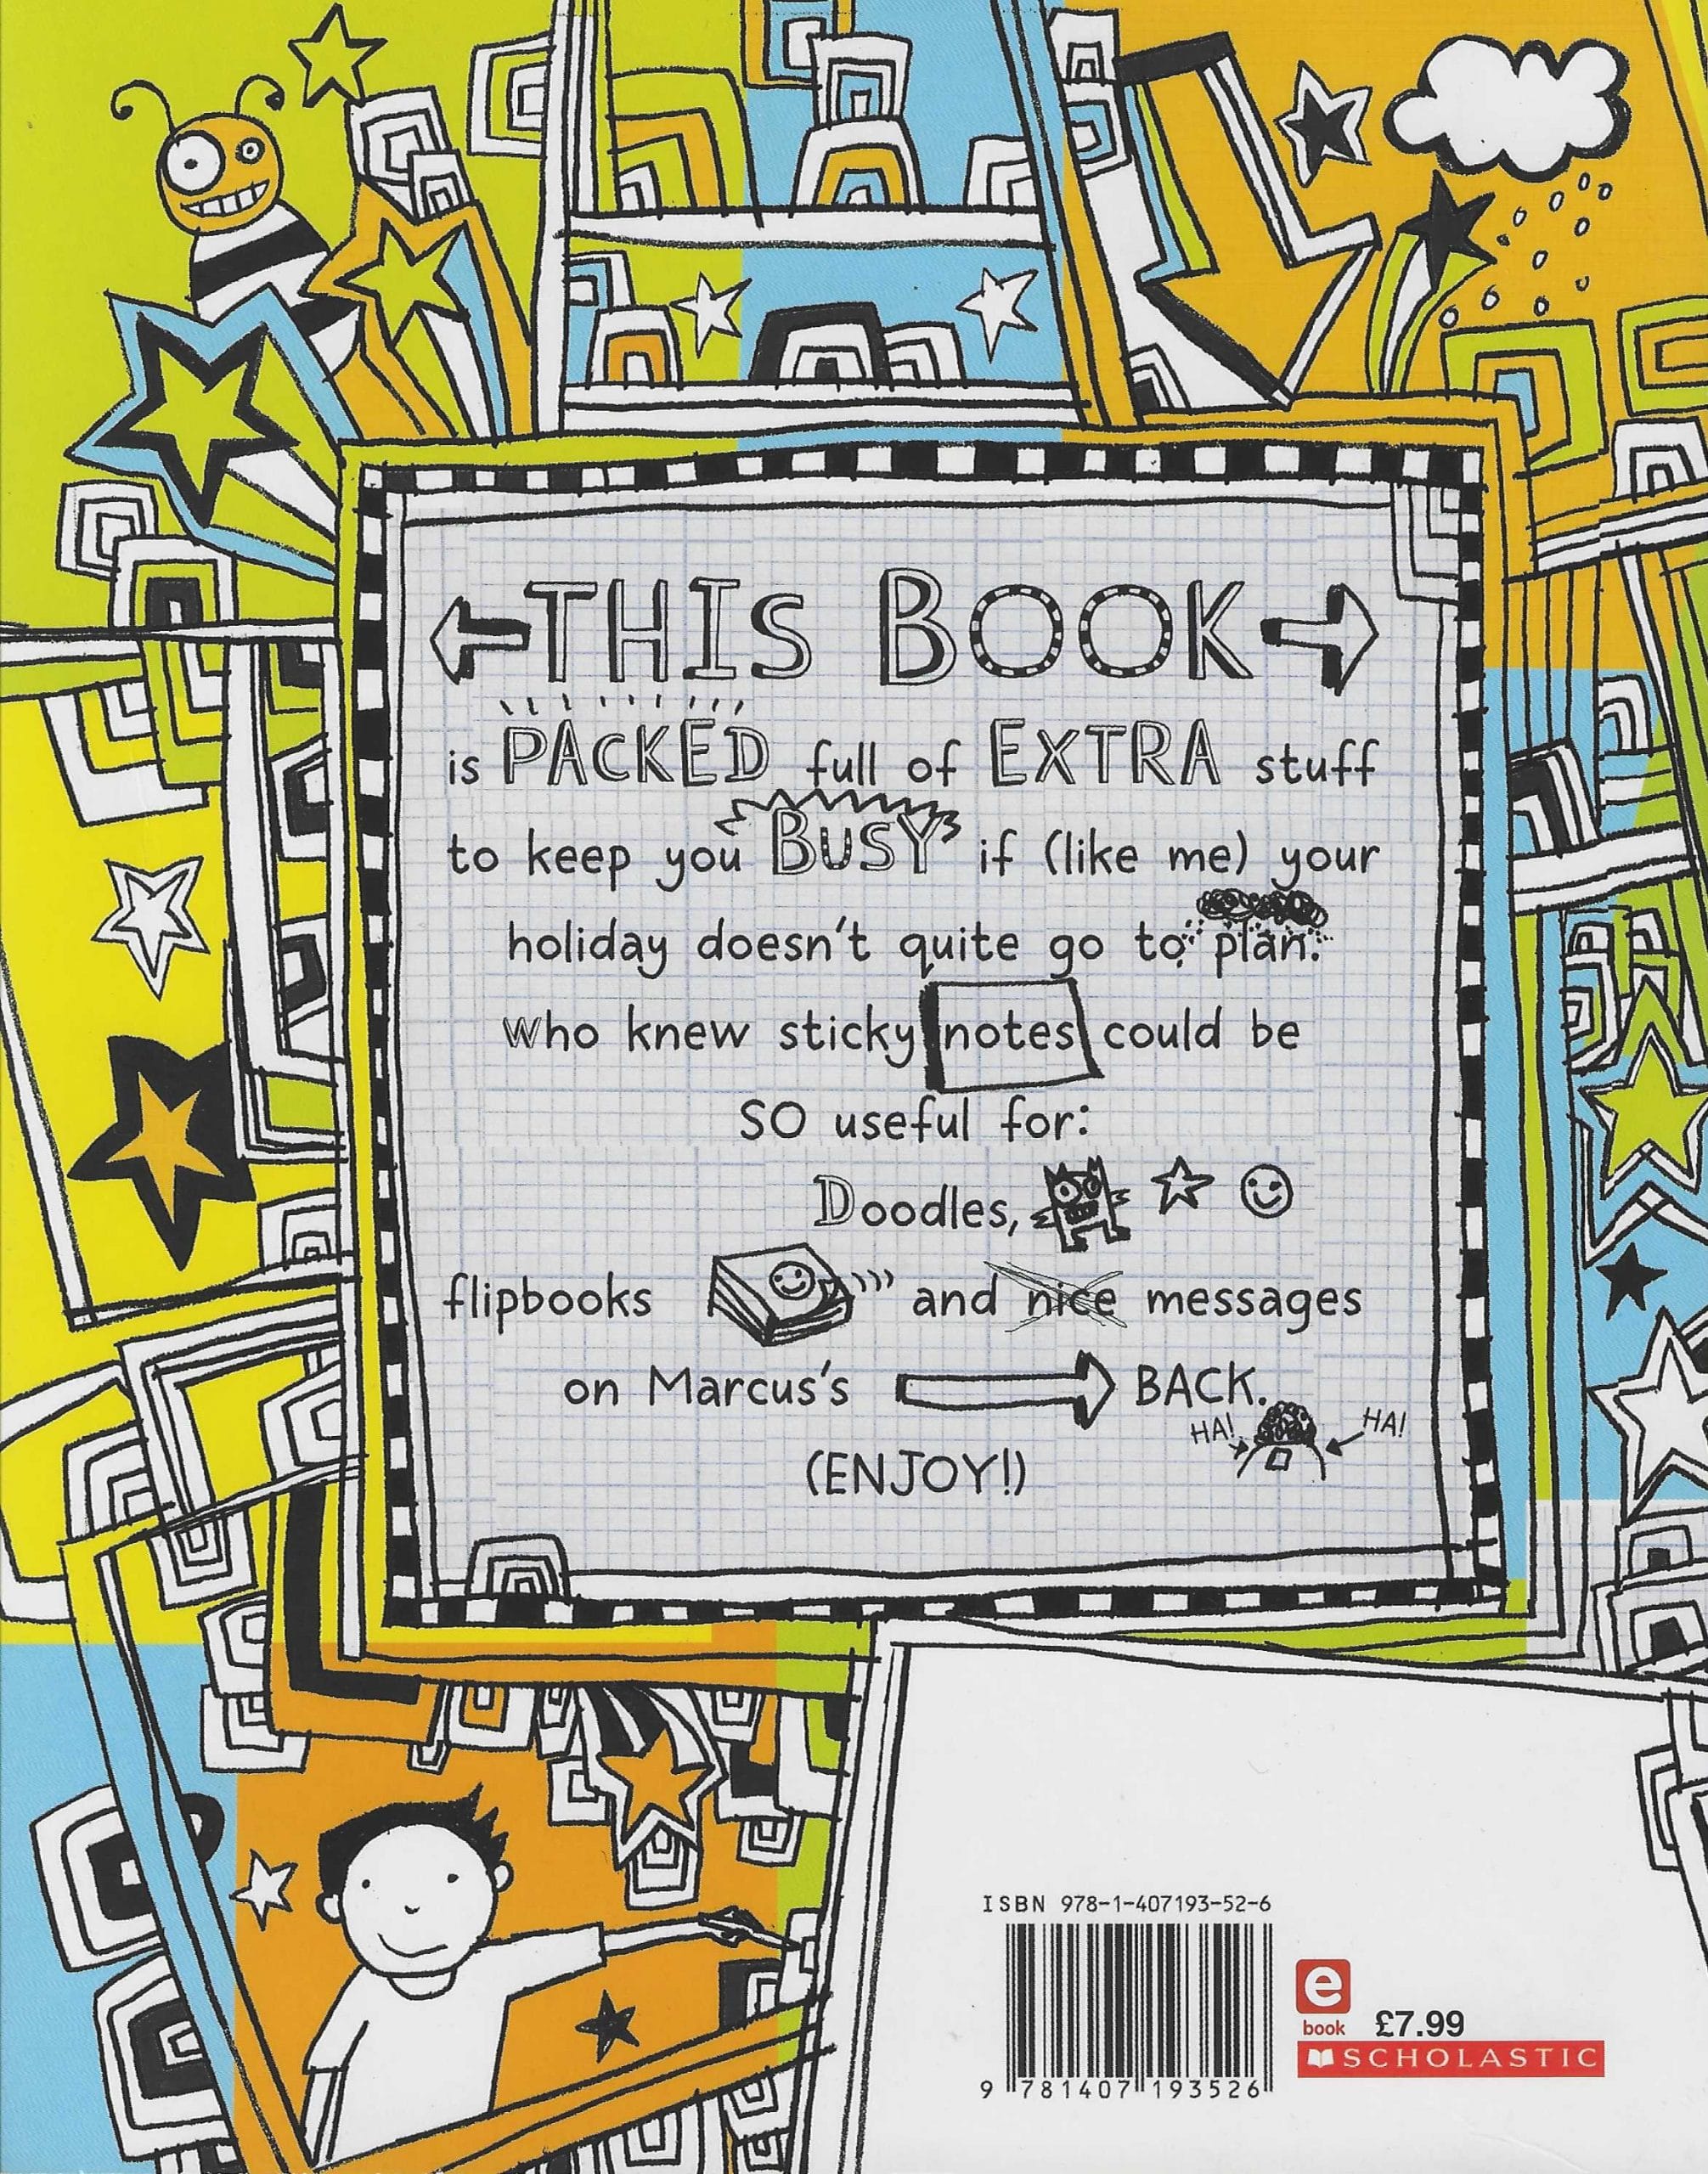 THIS BOOK
is PACKED full of EXTRA stuff
to keep you BUSY if (like me) your
holiday doesn't quite go to plan.
Who knew sticky notes could be
SO useful for:
Doodles,
flipbooks and nice messages
on Marcus's BACK.
HA! HA!
(ENJOY!)
ISBN 978-1-407193-52-6
9 781407 193526
e
book £7.99
SCHOLASTIC